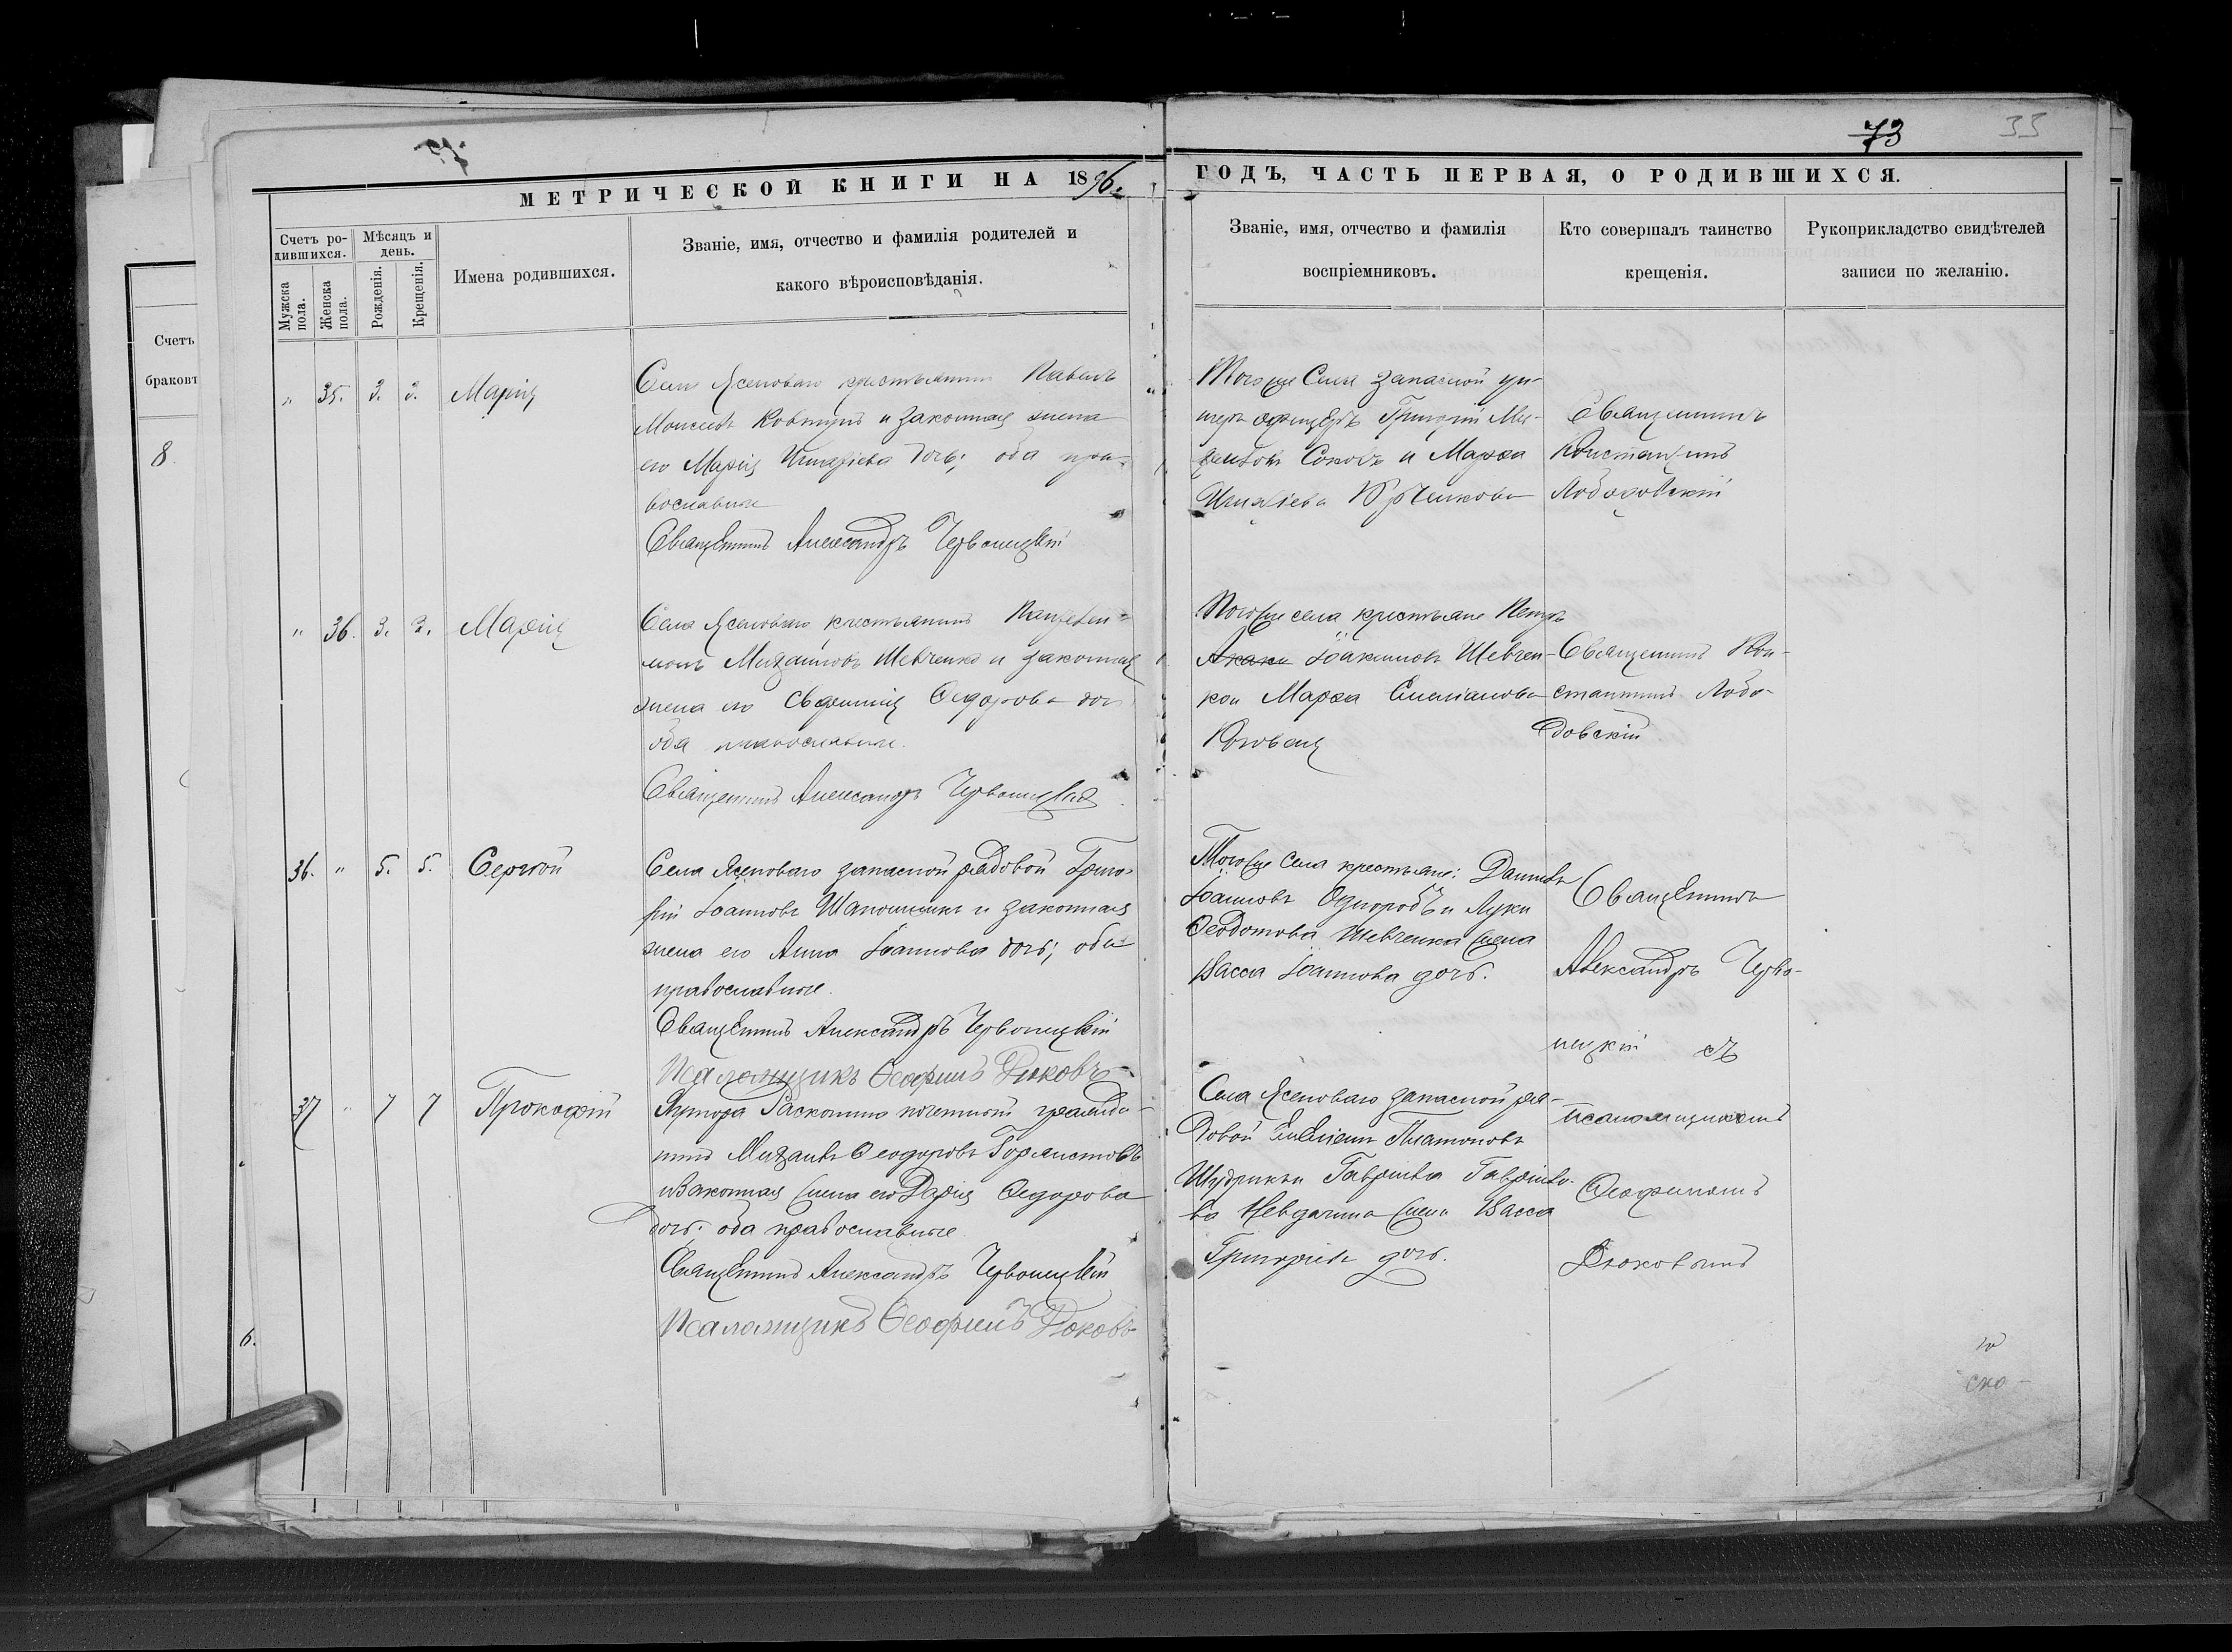 73 33
МЕТРИЧЕСКОЙ КНИГИ НА 1896 ГОДЪ, ЧАСТЬ ПЕРВАЯ, О РОДИВШИХСЯ.
Счетъ ро-
дившихся.
Мужска
пола.
Женска
пола.
Мѣсяцъ и
день.
Рожденія.
Крещенія.
Имена родившихся.
Званіе, имя, отчество и фамилія родителей и
какого вѣроисповѣданія.
Званіе, имя, отчество и фамилія
воспріемниковъ.
Кто совершалъ таинство
крещенія.
Рукоприкладство свидѣтелей
записи по желанію.
Счетъ
браковъ
8
„ 35. 3. 3. Марія
Села Ясеноваго крестьянинъ Павелъ
Моисеевъ Ковтунъ и законная жена
его Марія Игнатіева дочь; оба пра-
вославные
Священникъ Александръ Червонецкій
Того же Села запасной ун-
теръ офицеръ Григорій Ми-
Соколъ и Марѳа
Игнатіева
Священникъ
Константинъ
Лободовскій
„ 36. 3. 3. Марія
Села Ясеноваго крестьянинъ Пантелей-
монъ Михайловъ Шевченко и законная
жена его Евфимія Ѳедорова дочь
оба православные.
Священникъ Александръ Червонецкій
Того же села крестьяне Петръ
Іоакимовъ Шевчен-
ко и Марѳа Емеліанова
Священникъ Кон-
стантинъ Лобо-
довскій
36. „ 5. 5. Сергій
Села Ясеноваго запасной рядовой Григо-
рій Іоанновъ Шапошникъ и законная
жена его Анна Іоаннова дочь; оба
православные.
Священникъ Александръ Червонецкій
Псаломщикъ Ѳеофилъ Дюковъ
Того же Села крестьяне: Даниилъ
Іоанновъ Однородъ и Луки
Ѳеодотова Шевченка жена
Васса Іоаннова дочь.
Священникъ
Александръ Черво-
нецкій съ
псаломщикомъ
Ѳеофиломъ
Дюковымъ
37 „ 7 7 Прокофій
Хутора почетный гражда-
нинъ Михаилъ Ѳеодоровъ
и Законная жена его Дарія Ѳедорова
дочь; оба православные
Священникъ Александръ Червонецкій
Псаломщикъ Ѳеофилъ Дюковъ
Села Ясеноваго запасной ря-
довой Емеліанъ Платоновъ
Гавріила Гавріило-
ва жена Васса
Григоріева дочь.
6.